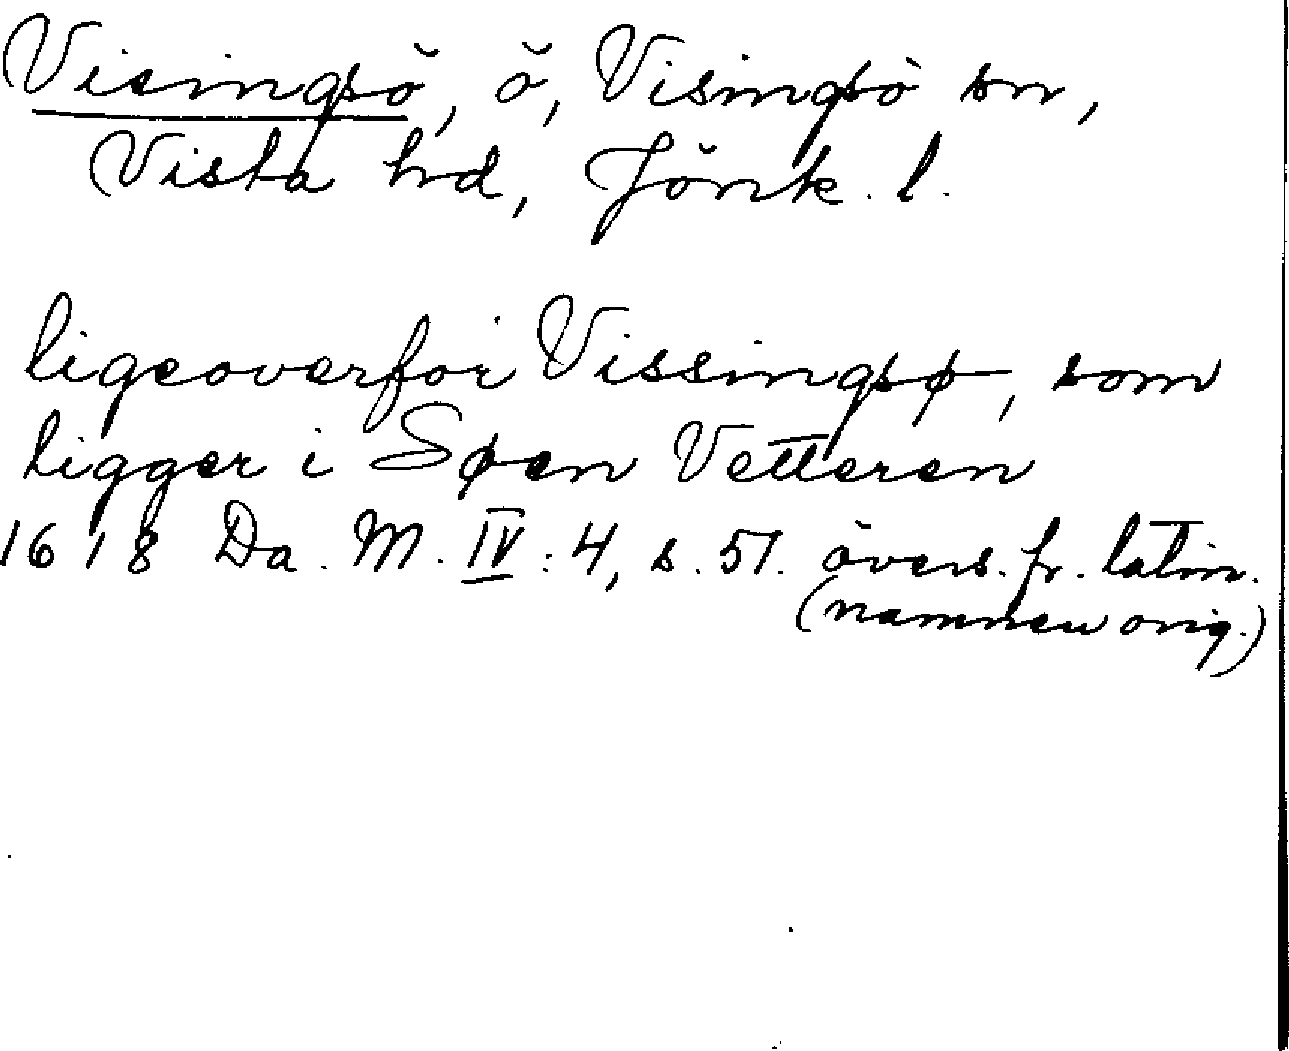 Visingsö, ö, Visingsö sn,
Vista hd, Jönk. l.
ligeoverfor Vissingsø, som
ligger i Søen Vetteren
1618 Da. M. IV: 4, s. 51. övers. fr. latin.
(namnen orig.)